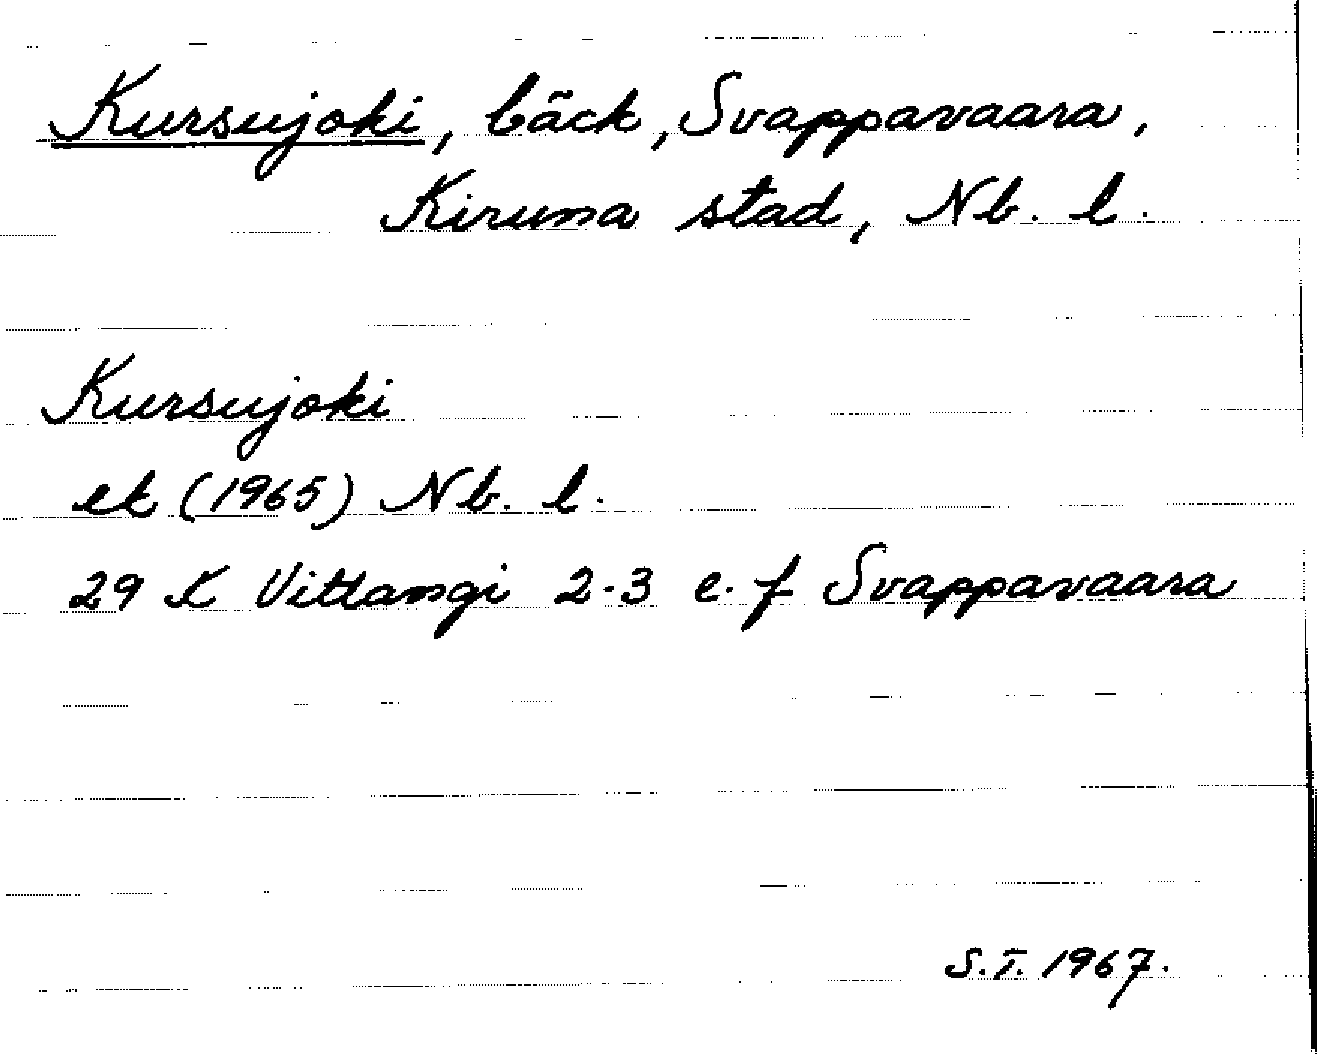 Kursujoki, bäck, Svappavaara,
Kiruna stad, Nb. l.
Kursujoki
ek (1965) Nb. l.
29 K Vittangi 2-3 e-f Svappavaara
S.T. 1967.